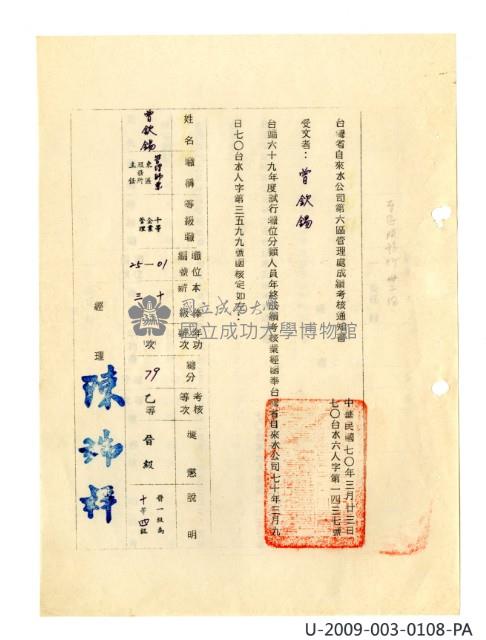 台灣省自來水公司第六區管理處成績考核通知書
中華民國七〇年三月廿三日
七〇台水六人字第一四三七號
受文者：曾欽錫
台端六十九年度試行職位分類人員年終成績考核業經函奉台灣省自來水公司七十年三月九
日七〇台水人字第三五九九號函核定如次：
姓名 職稱 等級 職位編號 本薪 年功 總分 考核等次 獎懲 說明
曾欽錫 東區服務所主任 十等企業管理 25-01 79 乙等 晉級 晉一級為十等四級
經理 陳瑞祥
國立成功大學博物館
U-2009-003-0108-PA